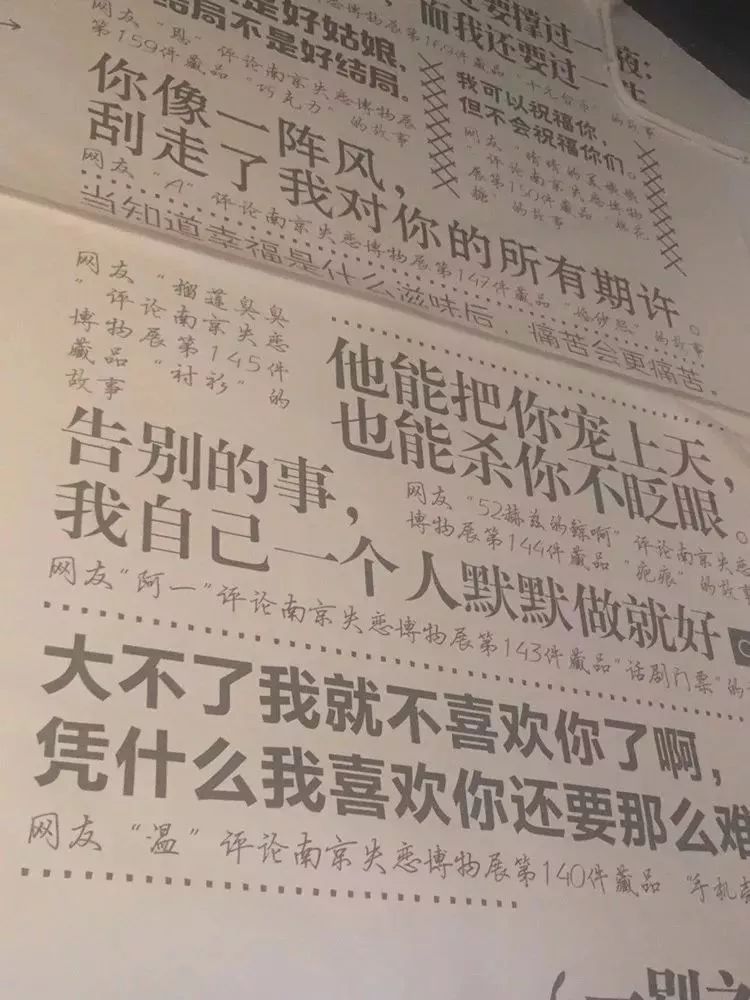 是好姑娘,
结局不是好结局。
网友“恩”评论南京失恋博物展
第159件藏品“巧克力”的故事
还要撑过一夜;
而我还要过一
我可以祝福你,
但不会祝福你们。
你像一阵风,
刮走了我对你的所有期许。
网友“A”评论南京失恋博物展第147件藏品“婚纱照”的故事
当知道幸福是什么滋味后,痛苦会更痛苦。
网友“榴莲臭臭
”评论南京失恋
博物展第145件
藏品“衬衫”的
故事
他能把你宠上天,
也能杀你不眨眼。
网友“52赫兹鸽鲸啊”评论南京失恋
博物展第144件藏品“疤痕”的故事
告别的事,
我自己一个人默默做就好
网友“阿一”评论南京失恋博物展第143件藏品“话剧门票”的
大不了我就不喜欢你了啊,
凭什么我喜欢你还要那么难
网友“温”评论南京失恋博物展第140件藏品“手机
一别